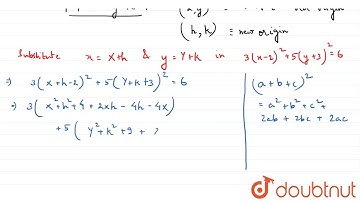 (h, k) ≡ new origin
Substitute x = X+h & y = Y+k in 3(x-2)²+5(y+3)²=6
⇒) 3(x+h-2)² + 5(Y+k+3)² = 6
⇒ 3(x²+h²+4+2xh-4h-4x)
+5( y²+k²+9+
(a+b+c)²
= a²+b²+c²+
2ab + 2bc + 2ac
doubtnut